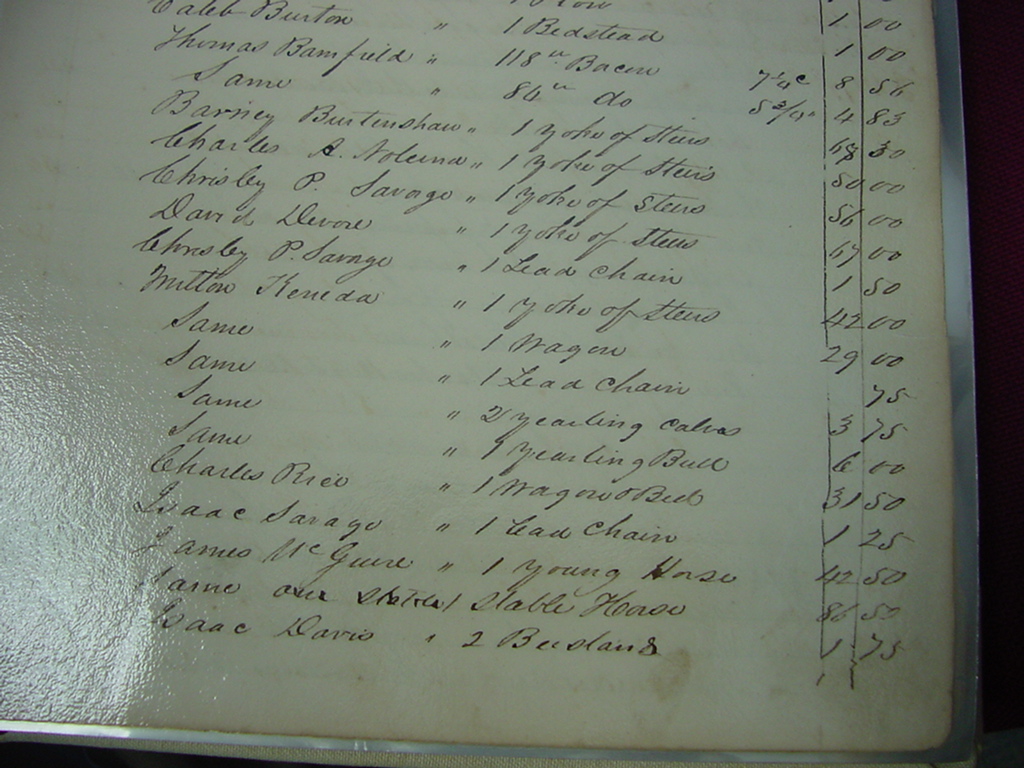 Caleb Burton " 1 Bedstead 1 00
Thomas Bamfield " 118 lb Bacon 7 1/4c 8 56
Same " 84 lb do 5 3/4" 4 83
Barney Burtenshaw " 1 yoke of Steers 68 30
Charles A. " 1 yoke of Steers 50 00
Chrisby P. Savage " 1 yoke of Steers 56 00
David Devore " 1 yoke of Steers 67 00
Chrisby P. Savage " 1 Lead Chain 1 50
Milton Keneda " 1 yoke of Steers 42 00
Same " 1 Wagon 29 00
Same " 1 Lead Chain 75
Same " 2 yearling calves 3 75
Same " 1 Yearling Bull 6 00
Charles Rice " 1 Wagon & Bed 31 50
Isaac Savage " 1 Lead Chain 1 25
James McGuire " 1 Young Horse 42 50
Same one 1 Stable Horse 86 50
Isaac Davis " 2 1 75